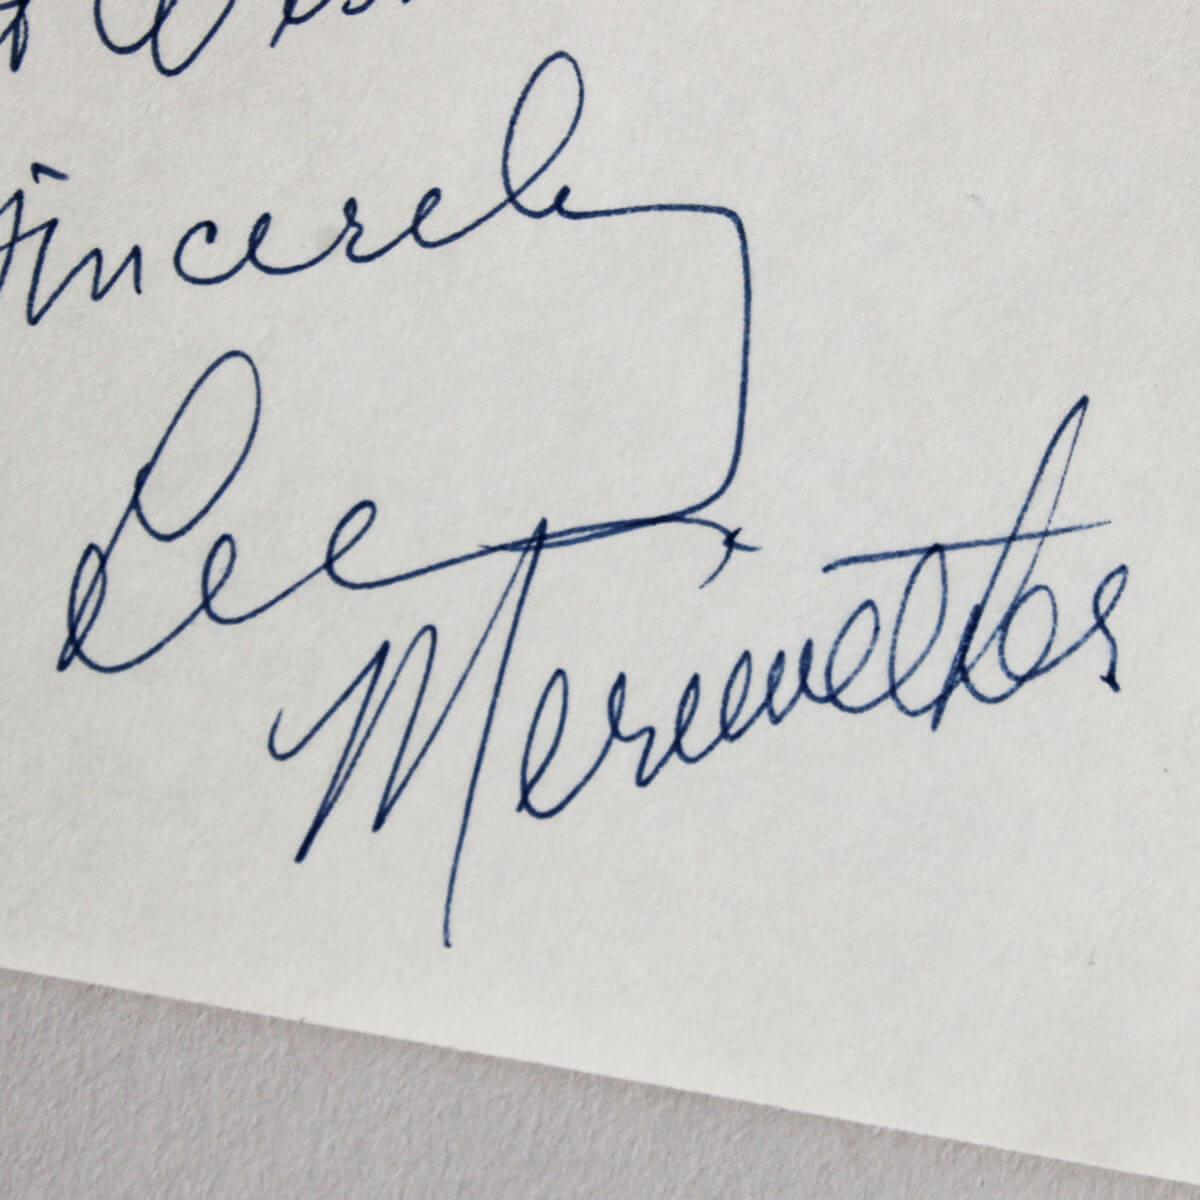 Sincerely
Lee
Meriwether